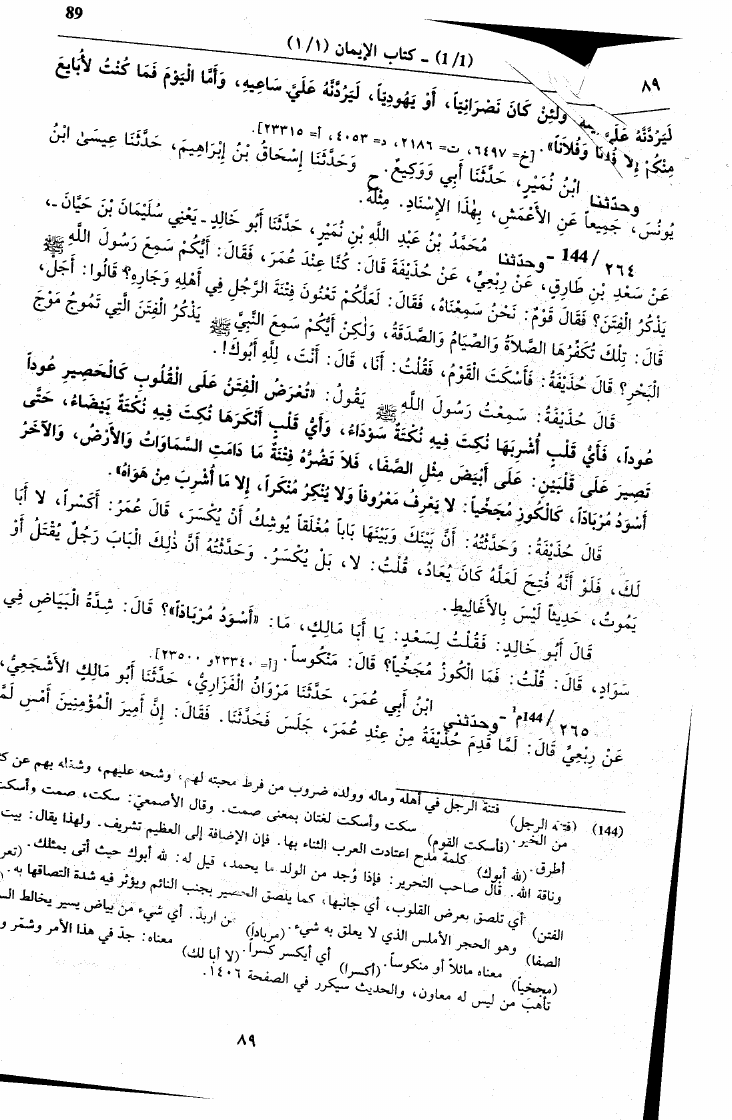 89
٨٩
(1/1) ـ كتاب الإيمان (١/١)
لَيَرُدَّنَّهُ عَلَيَّ ولَئِنْ كَانَ نَصْرَانِيّاً، أَوْ يَهُودِيّاً، لَيَرُدَّنَّهُ عَلَيَّ سَاعِيهِ، وَأَمَّا الْيَوْمَ فَمَا كُنْتُ لأُبَايِعَ
مِنْكُمْ إِلا فُلَاناً وَفُلَاناً». [خ= ٦٤٩٧، ت= ٢١٨٦، د= ٤٠٥٣، أ= ٢٣٣١٥].
وحدثنا ابْنُ نُمَيْرٍ، حَدَّثَنَا أَبِي وَوَكِيعٌ. ح وَحَدَّثَنَا إِسْحَاقُ بْنُ إِبْرَاهِيمَ، حَدَّثَنَا عِيسَى ابْنُ
يُونُسَ، جَمِيعاً عَنِ الأَعْمَشِ، بِهٰذَا الإِسْنَادِ. مِثْلَهُ.
٢٦٤ /144 - وحدثنا مُحَمَّدُ بْنُ عَبْدِ اللَّهِ بْنِ نُمَيْرٍ، حَدَّثَنَا أَبُو خَالِدٍ ـ يَعْنِي سُلَيْمَانَ بْنَ حَيَّانَ ـ،
عَنْ سَعْدِ بْنِ طَارِقٍ، عَنْ رِبْعِيٍّ، عَنْ حُذَيْفَةَ قَالَ: كُنَّا عِنْدَ عُمَرَ، فَقَالَ: أَيُّكُمْ سَمِعَ رَسُولَ اللَّهِ ﷺ
يَذْكُرُ الْفِتَنَ؟ فَقَالَ قَوْمٌ: نَحْنُ سَمِعْنَاهُ، فَقَالَ: لَعَلَّكُمْ تَعْنُونَ فِتْنَةَ الرَّجُلِ فِي أَهْلِهِ وَجَارِهِ؟ قَالُوا: أَجَلْ،
قَالَ: تِلْكَ تُكَفِّرُهَا الصَّلاَةُ وَالصِّيَامُ وَالصَّدَقَةُ، وَلٰكِنْ أَيُّكُمْ سَمِعَ النَّبِيَّ ﷺ يَذْكُرُ الْفِتَنَ الَّتِي تَمُوجُ مَوْجَ
الْبَحْرِ؟ قَالَ حُذَيْفَةُ: فَأَسْكَتَ الْقَوْمُ، فَقُلْتُ: أَنَا، قَالَ: أَنْتَ، لِلَّهِ أَبُوكَ!.
قَالَ حُذَيْفَةُ: سَمِعْتُ رَسُولَ اللَّهِ ﷺ يَقُولُ: «تُعْرَضُ الْفِتَنُ عَلَى الْقُلُوبِ كَالْحَصِيرِ عُوداً
عُوداً، فَأَيُّ قَلْبٍ أُشْرِبَهَا نُكِتَ فِيهِ نُكْتَةٌ سَوْدَاءُ، وَأَيُّ قَلْبٍ أَنْكَرَهَا نُكِتَ فِيهِ نُكْتَةٌ بَيْضَاءُ، حَتَّى
تَصِيرَ عَلَى قَلْبَيْنِ: عَلَى أَبْيَضَ مِثْلِ الصَّفَا، فَلاَ تَضُرُّهُ فِتْنَةٌ مَا دَامَتِ السَّمَاوَاتُ وَالأَرْضُ، وَالآخَرُ
أَسْوَدُ مُرْبَادّاً، كَالْكُوزِ مُجَخِّياً: لا يَعْرِفُ مَعْرُوفاً وَلا يُنْكِرُ مُنْكَراً، إِلا مَا أُشْرِبَ مِنْ هَوَاهُ».
قَالَ حُذَيْفَةُ: وَحَدَّثْتُهُ: أَنَّ بَيْنَكَ وَبَيْنَهَا بَاباً مُغْلَقاً يُوشِكُ أَنْ يُكْسَرَ، قَالَ عُمَرُ: أَكَسْراً، لا أَبَا
لَكَ، فَلَوْ أَنَّهُ فُتِحَ لَعَلَّهُ كَانَ يُعَادُ، قُلْتُ: لا، بَلْ يُكْسَرُ. وَحَدَّثْتُهُ أَنَّ ذٰلِكَ الْبَابَ رَجُلٌ يُقْتَلُ أَوْ
يَمُوتُ، حَدِيثاً لَيْسَ بِالأَغَالِيطِ.
قَالَ أَبُو خَالِدٍ: فَقُلْتُ لِسَعْدٍ: يَا أَبَا مَالِكٍ، مَا: «أَسْوَدُ مُرْبَادّاً»؟ قَالَ: شِدَّةُ الْبَيَاضِ فِي
سَوَادٍ، قَالَ: قُلْتُ: فَمَا الْكُوزُ مُجَخِّياً؟ قَالَ: مَنْكُوساً. [أ= ٢٣٣٤٠ و ٢٣٥٠٠].
٢٦٥ /144م١ - وحدثني ابْنُ أَبِي عُمَرَ، حَدَّثَنَا مَرْوَانُ الْفَزَارِيُّ، حَدَّثَنَا أَبُو مَالِكٍ الأَشْجَعِيُّ،
عَنْ رِبْعِيٍّ قَالَ: لَمَّا قَدِمَ حُذَيْفَةُ مِنْ عِنْدِ عُمَرَ، جَلَسَ فَحَدَّثَنَا. فَقَالَ: إِنَّ أَمِيرَ الْمُؤْمِنِينَ أَمْسِ لَمَّا
(144) (فتنة الرجل) فتنة الرجل في أهله وماله وولده ضروب من فرط محبته لهم، وشحه عليهم، وشغله بهم عن
من الخير. (فأسكت القوم) سكت وأسكت لغتان بمعنى صمت. وقال الأصمعيّ: سكت، صمت وأسكت
أطرق. (لله أبوك) كلمة مدح اعتادت العرب الثناء بها. فإن الإضافة إلى العظيم تشريف. ولهذا يقال: بيت
وناقة الله. قال صاحب التحرير: فإذا وُجد من الولد ما يحمد، قيل له: لله أبوك حيث أتى بمثلك.
الفتن) أي تلصق بعرض القلوب، أي جانبها، كما يلصق الحصير بجنب النائم ويؤثر فيه شدة التصاقها به.
الصفا) وهو الحجر الأملس الذي لا يعلق به شيء. (مرباداً) من اربدّ. أي شيء من بياض يسير يخالط
(مجخياً) معناه مائلاً أو منكوساً. (أكسرا) أي أيكسر كسراً. (لا أبا لك) معناه: جدّ في هذا الأمر وشمّر
تأهب من ليس له معاون، والحديث سيكرر في الصفحة ١٤٠٦.
٨٩